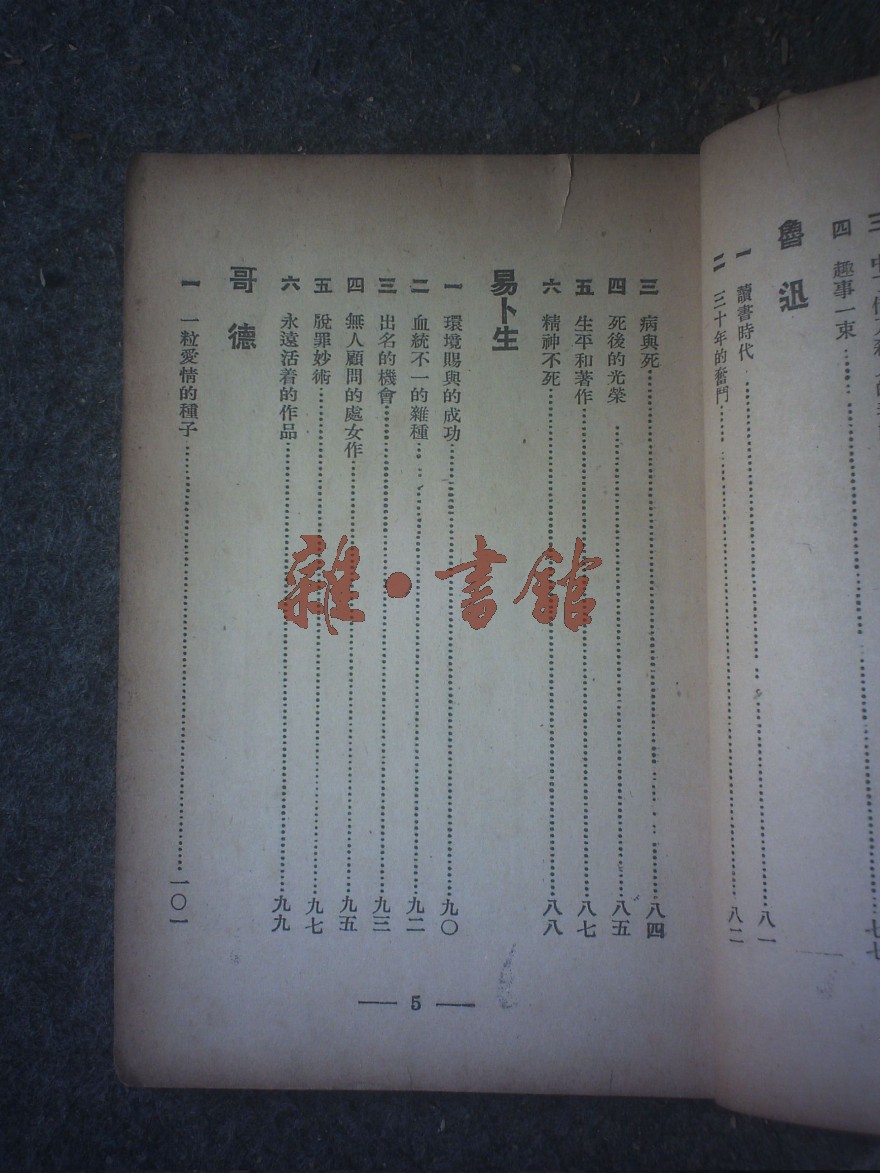 四 趣事一束 七七
魯迅
一 讀書時代 八一
二 三十年的奮鬥 八二
三 病與死 八四
四 死後的光榮 八五
五 生平和著作 八七
六 精神不死 八八
易卜生
一 環境賜與的成功 九〇
二 血統不一的雜種 九二
三 出名的機會 九三
四 無人顧問的處女作 九五
五 脫罪妙術 九七
六 永遠活着的作品 九九
哥德
一 一粒愛情的種子 一〇一
— 5 —
雜·書館